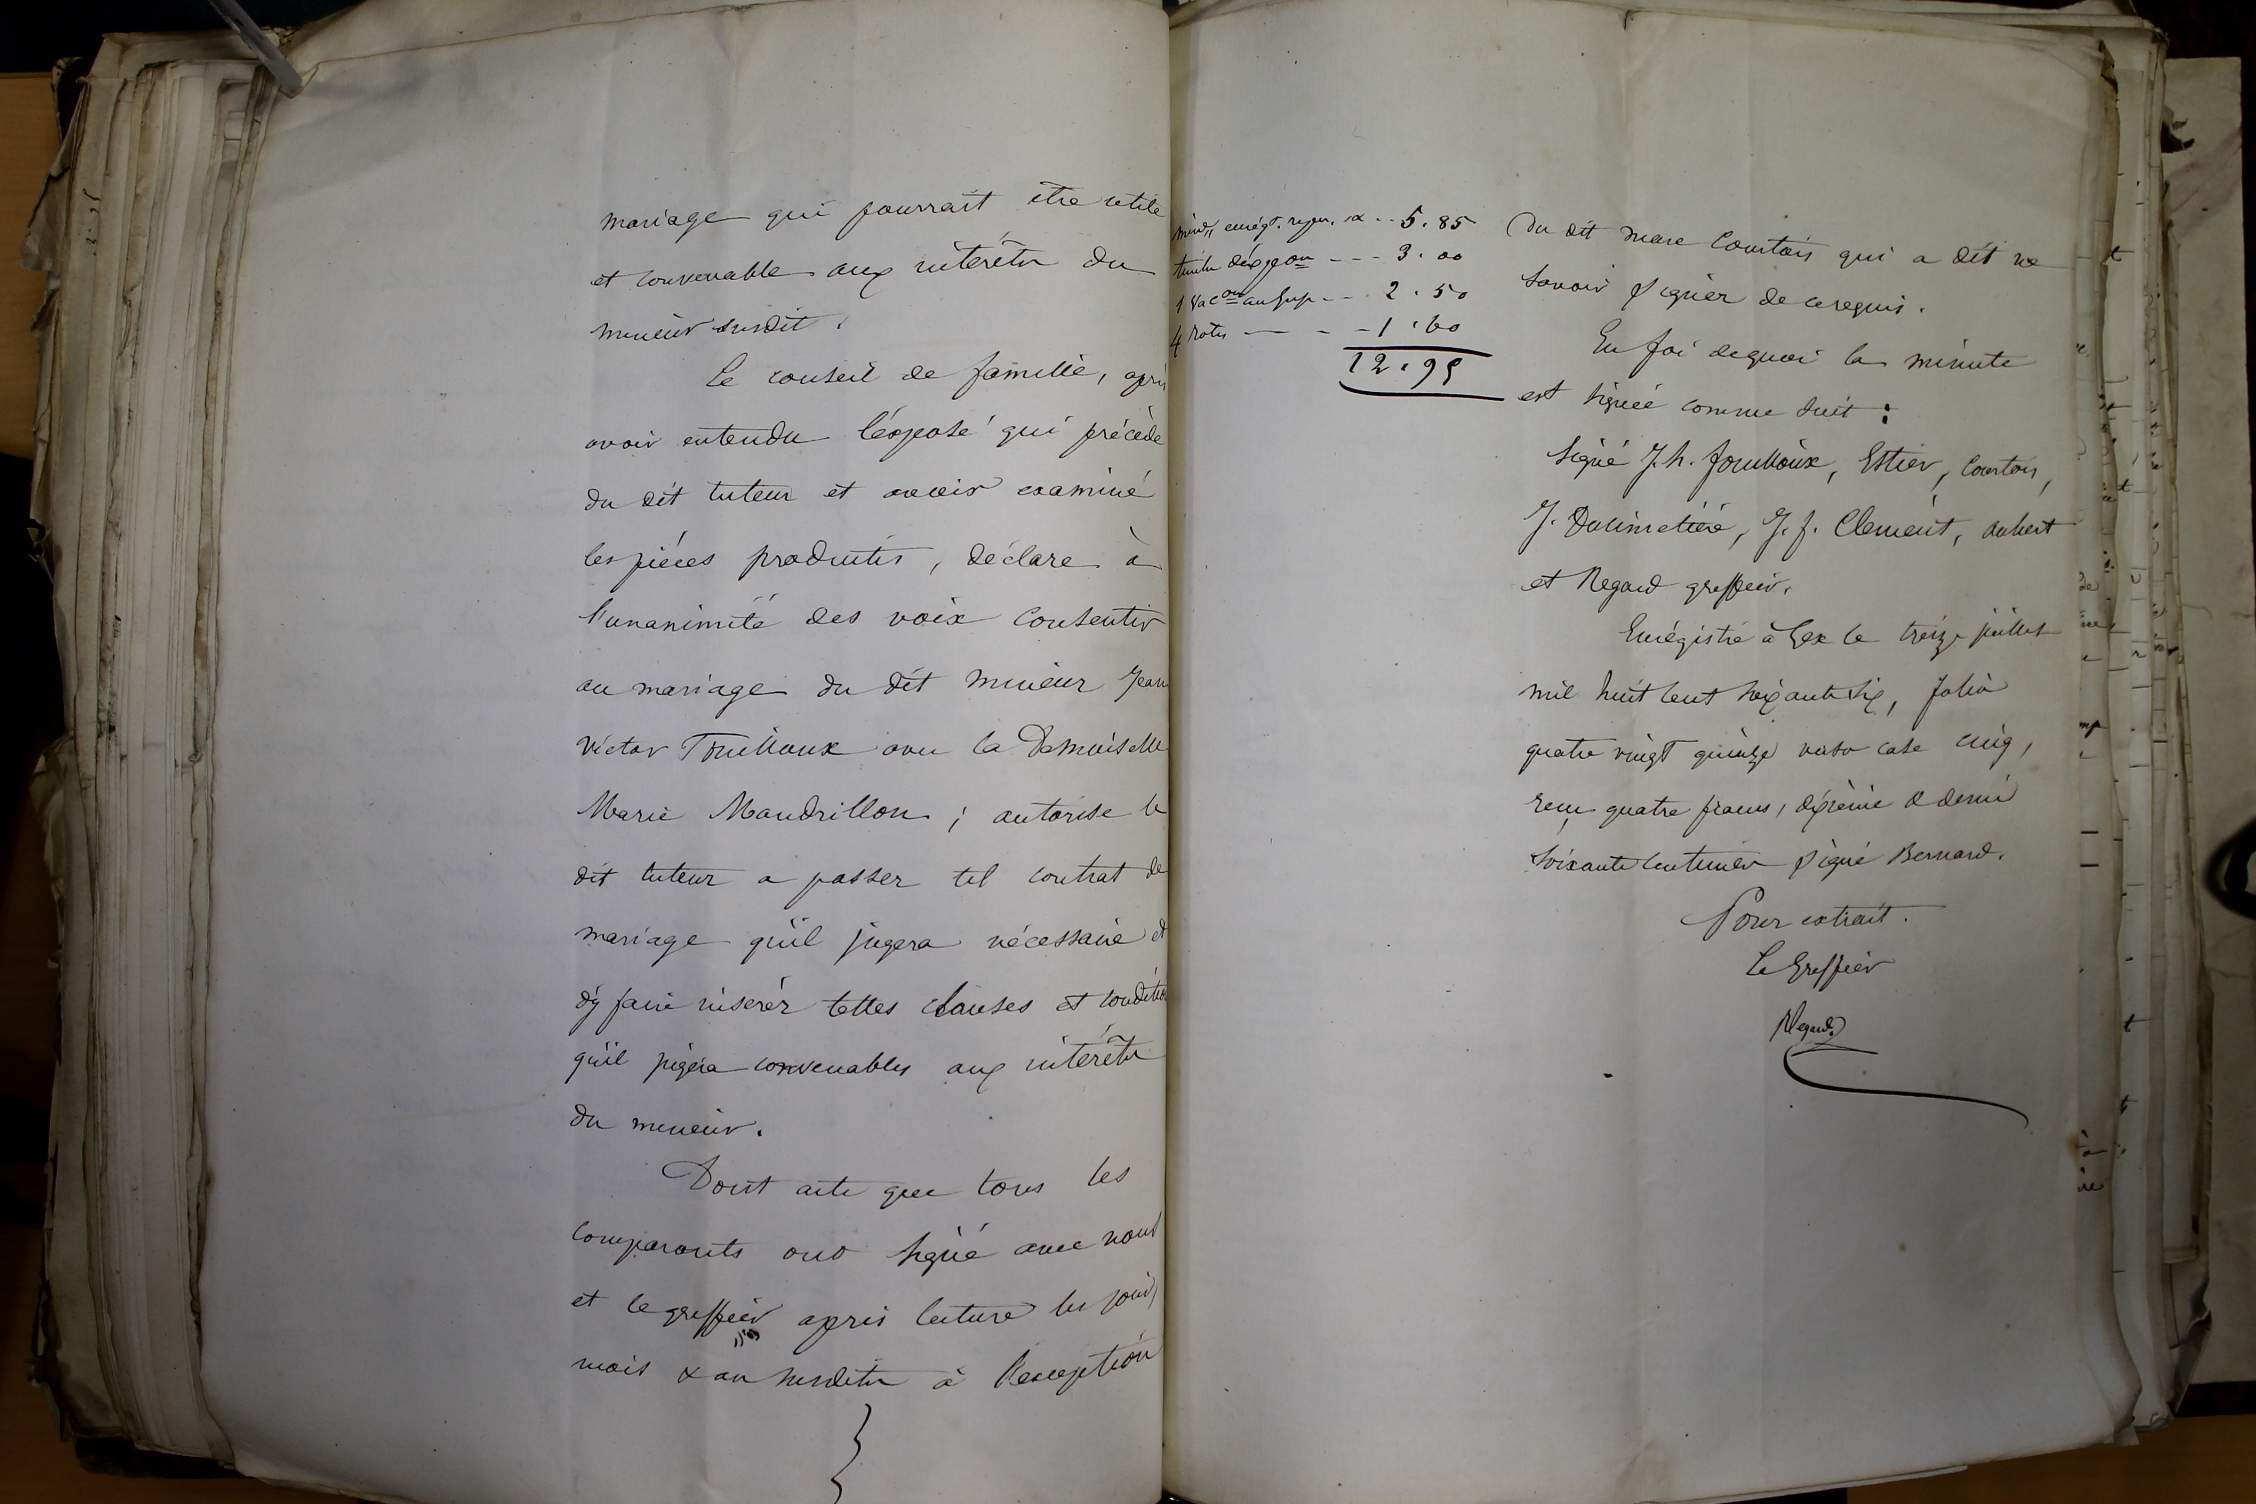 mariage qui pourrait être utile
et convenable aux intérêts du
mineur susdit.
Le conseil de famille, après
avoir entendu l'éxposé qui précède
du dit tuteur et avoir examiné
les pièces produites, déclare à
l'unanimité des voix consentir
au mariage du dit mineur Jean
Victor Fouilloux avec la Demoiselle
Marie Mandrillon ; autorise le
dit tuteur a passer tel contrat de
mariage qu'il jugera nécessaire et
d'y faire insérér telles clauses et condition
qu'il jugera convenables aux intérêts
du mineur.
Dont acte que tous les
comparants ont signé avec nous
et le greffier après lecture les jour,
mois & an susdits à l'exception
enrégt. 5.85
timbre 3.00
1 Vacon au 2.50
4 Rôles 1.60
12.95
du dit Marc Courtois qui a dit ne
savoir signer de ce requis.
En foi de quoi la minute
est signée comme suit :
Signé J. h. Fouilloux, Estier, Courtois,
J. J. f. Clement, Aubert
et Regard greffier.
Enrégistré à Gex le treize juillet
mil huit cent soixante six, folio
quatre vingt quinze verso case cinq,
reçu quatre francs, décime & demi
soixante centimes signé Bernard.
Pour extrait.
Le Greffier
Regard